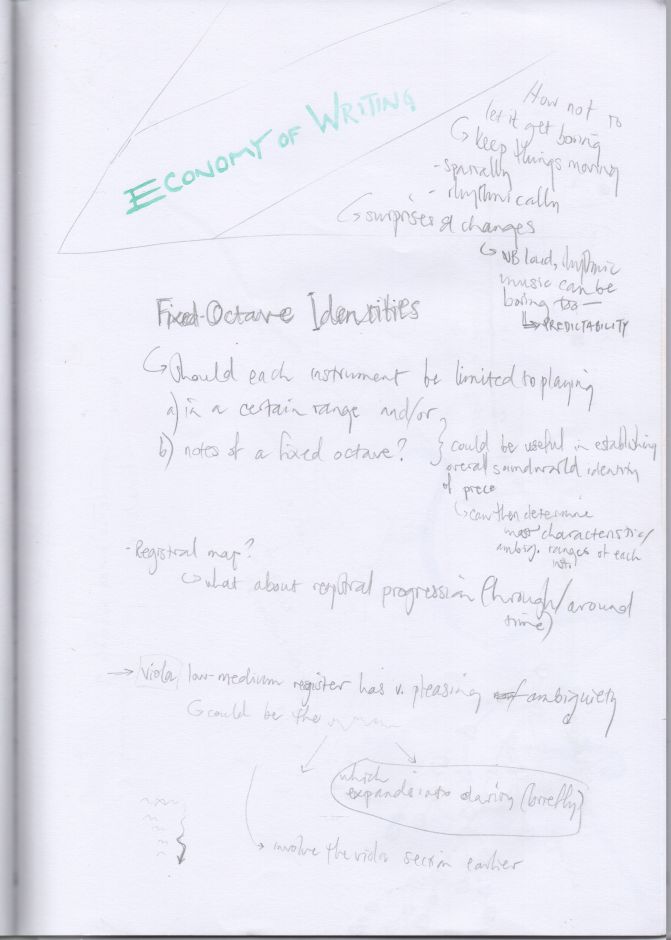 ECONOMY OF WRITING
How not to
let it get boring
↳ keep things moving
- spatially
- rhythmically
↳ surprises & changes
↳ NB loud, rhythmic
music can be
boring too —
↳ PREDICTABILITY
Fixed-Octave Identities
↳ Should each instrument be limited to playing
a) in a certain range and/or
b) notes of a fixed octave?
} could be useful in establishing
overall soundworld identity
of piece
↳ can then determine
most characteristic/
ambig. ranges of each
instr.
- Registral map?
↳ what about registral progression (through/around
time)
→ viola, low-medium register has v. pleasing ambiguiety
↳ could be the
which
expands into clarity (briefly)
→ involve the viola section earlier